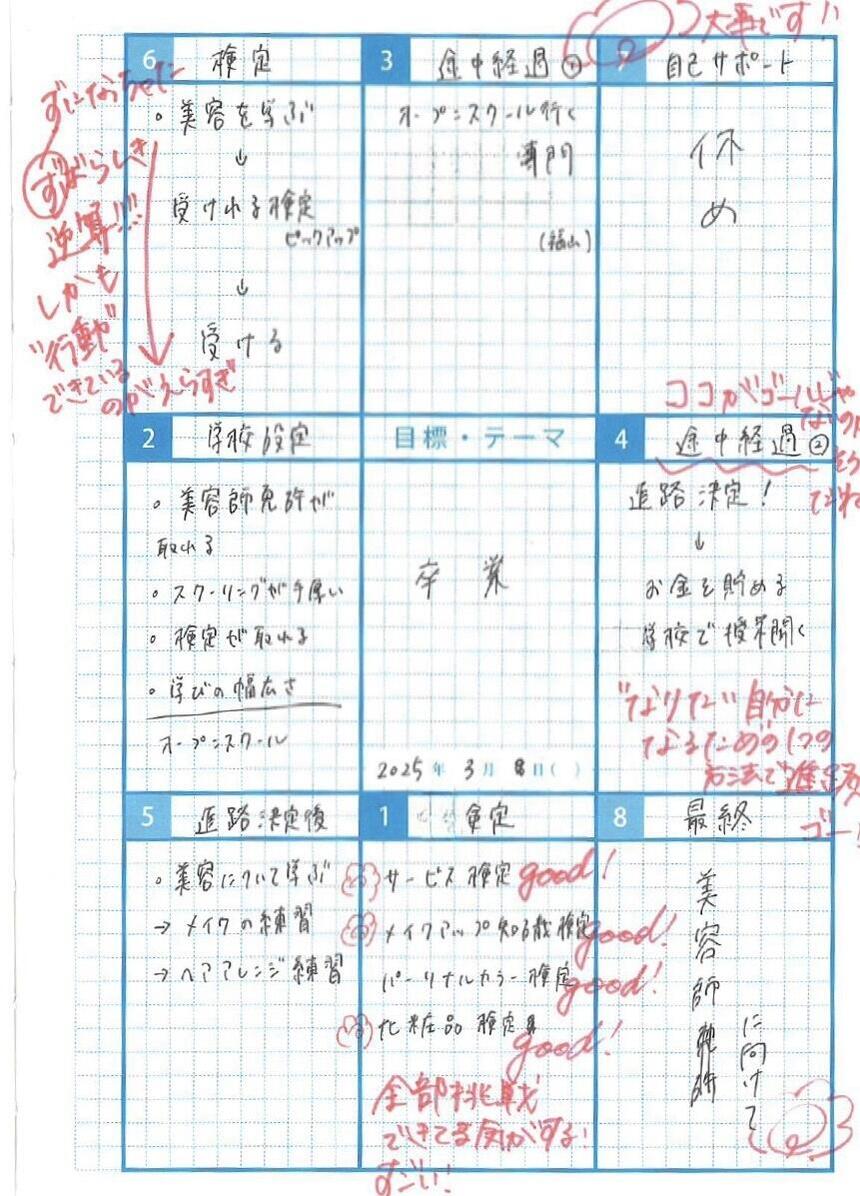 大事です!!
6 検定
3 途中経過①
7 自己サポート
ずになっちゃった
・美容を学ぶ
↓
受けれる検定
ピックアップ
↓
受ける
ずばらしき
逆算!!!
しかも
"行動"
できている
のがえらすぎ
オープンスクール行く
専門
(福山)
休
め
ココがゴールじゃ
ないの
2 学校設定
目標・テーマ
4 途中経過②
・美容師免許が
取れる
・スクーリングが手厚い
・検定が取れる
・学びの幅広さ
オープンスクール
卒業
2025年 3月 8日( )
進路決定!
↓
お金を貯める
学校で授業聞く
"なりたい"自分に
なるための1つの
方法で進級
ゴー!
5 進路決定後
1 検定
8 最終
・美容について学ぶ
→ メイクの練習
→ ヘアアレンジ練習
サービス検定 good!
メイクアップ知識検定 good!
パーソナルカラー検定 good!
化粧品検定 good!
全部挑戦
できてる気がする!
すごい!
美容師免許
に向けて